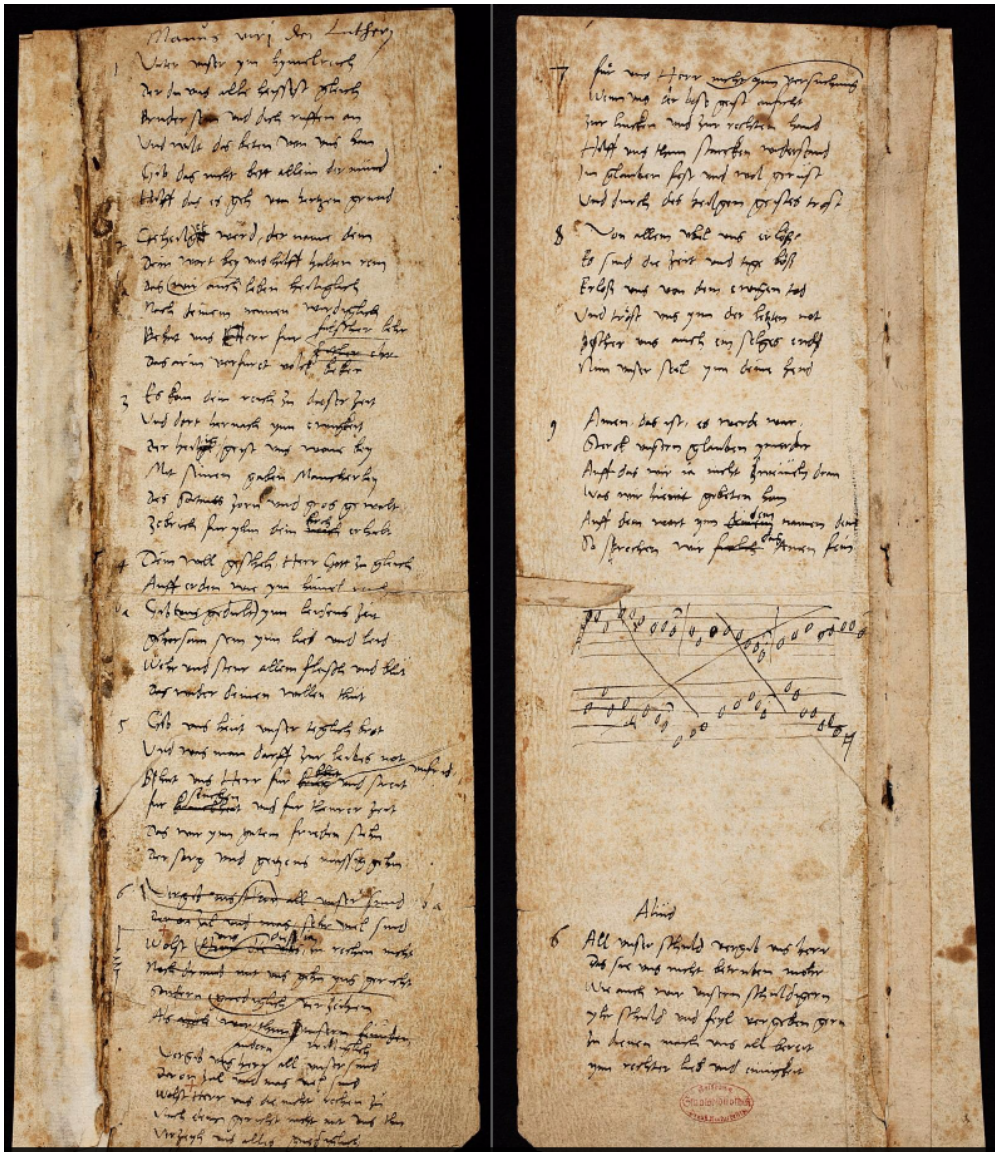 Manus viri dei Lutherj
1 Vater unser ym hymelreich
Der du uns alle heissest gleich
Bruder sein und dich ruffen an
Und wilt das beten von uns han
Gib das nicht bett allein der mund
Hilff das es geh von hertzen grund
Geheiligt werd der name dein
Dein wort bey uns hilff halten rein
Das wir auch leben heiliglich
Nach deinem namen wirdiglich
Behut uns Herr fur falscher lehr
Das arm verfuret volck beker
3 Es kom dein reich zu dieser zeit
Und dort hernach ynn ewickeit
Der heilig geist uns wone bey
Mit seinen gaben mancherley
Des Satans zorn und gros gewalt
Zebrich fur yhm dein kirch erhalt
4 Dein will gescheh Herr Gott zu gleich
Auff erden wie ym himel reich
Gib uns gedult ynn leidens zeit
Gehorsam sein ynn lieb und leid
Wehr und steur allem fleisch und blut
Das widder deinen willen thut
5 Gib uns heut unser teglich brot
Und was man darff zur leibes not
Bhut uns Herr fur unfrid und streit
fur seuchen und fur theurer zeit
Das wir ynn gutem frieden stehn
Der sorg und geitzens mussig gehn
6 Vergib uns Herr all unser sund
Der on zal und mas sehr viel sind
Wolst rechen nicht
Noch mit uns gehn yns gericht
Sondern
Als wir unsern
Vergib uns herr all unser sund
Der on zal und mas viel sind
Wolst Herr uns die nicht rechen zu
Nach deim gericht nicht mit uns thu
Verzeyh uns alles gnediglich
7 fur uns Herr nicht ynn versuchung
Wenn uns der bose geist anficht
Zur lincken und zur rechten hand
Hilff uns thun starcken widerstand
Im glauben fest und wol gerust
Und durch des heilgen geistes trost
8 Von allem ubel uns erlose
Es sind die zeit und tage bos
Erlos uns von dem ewigen tod
Und trost uns ynn der letzten not
Bescher uns auch ein seligs end
Nim unser seel ynn deine hend
9 Amen das ist es werde war
Sterck unsern glauben ymerdar
Auff das wir ia nicht zweiveln dran
Was wir hiemit gebeten han
Auff dein wort ynn dem namen dein
So sprechen wir das Amen fein
Aliud
6 All unser schuld vergib uns herr
Das sie uns nicht betruben mehr
Wie auch wir unsern schuldigern
yhr schuld und feyl vergeben gern
Zu dienen mach uns all bereit
ynn rechter lieb und einigkeit